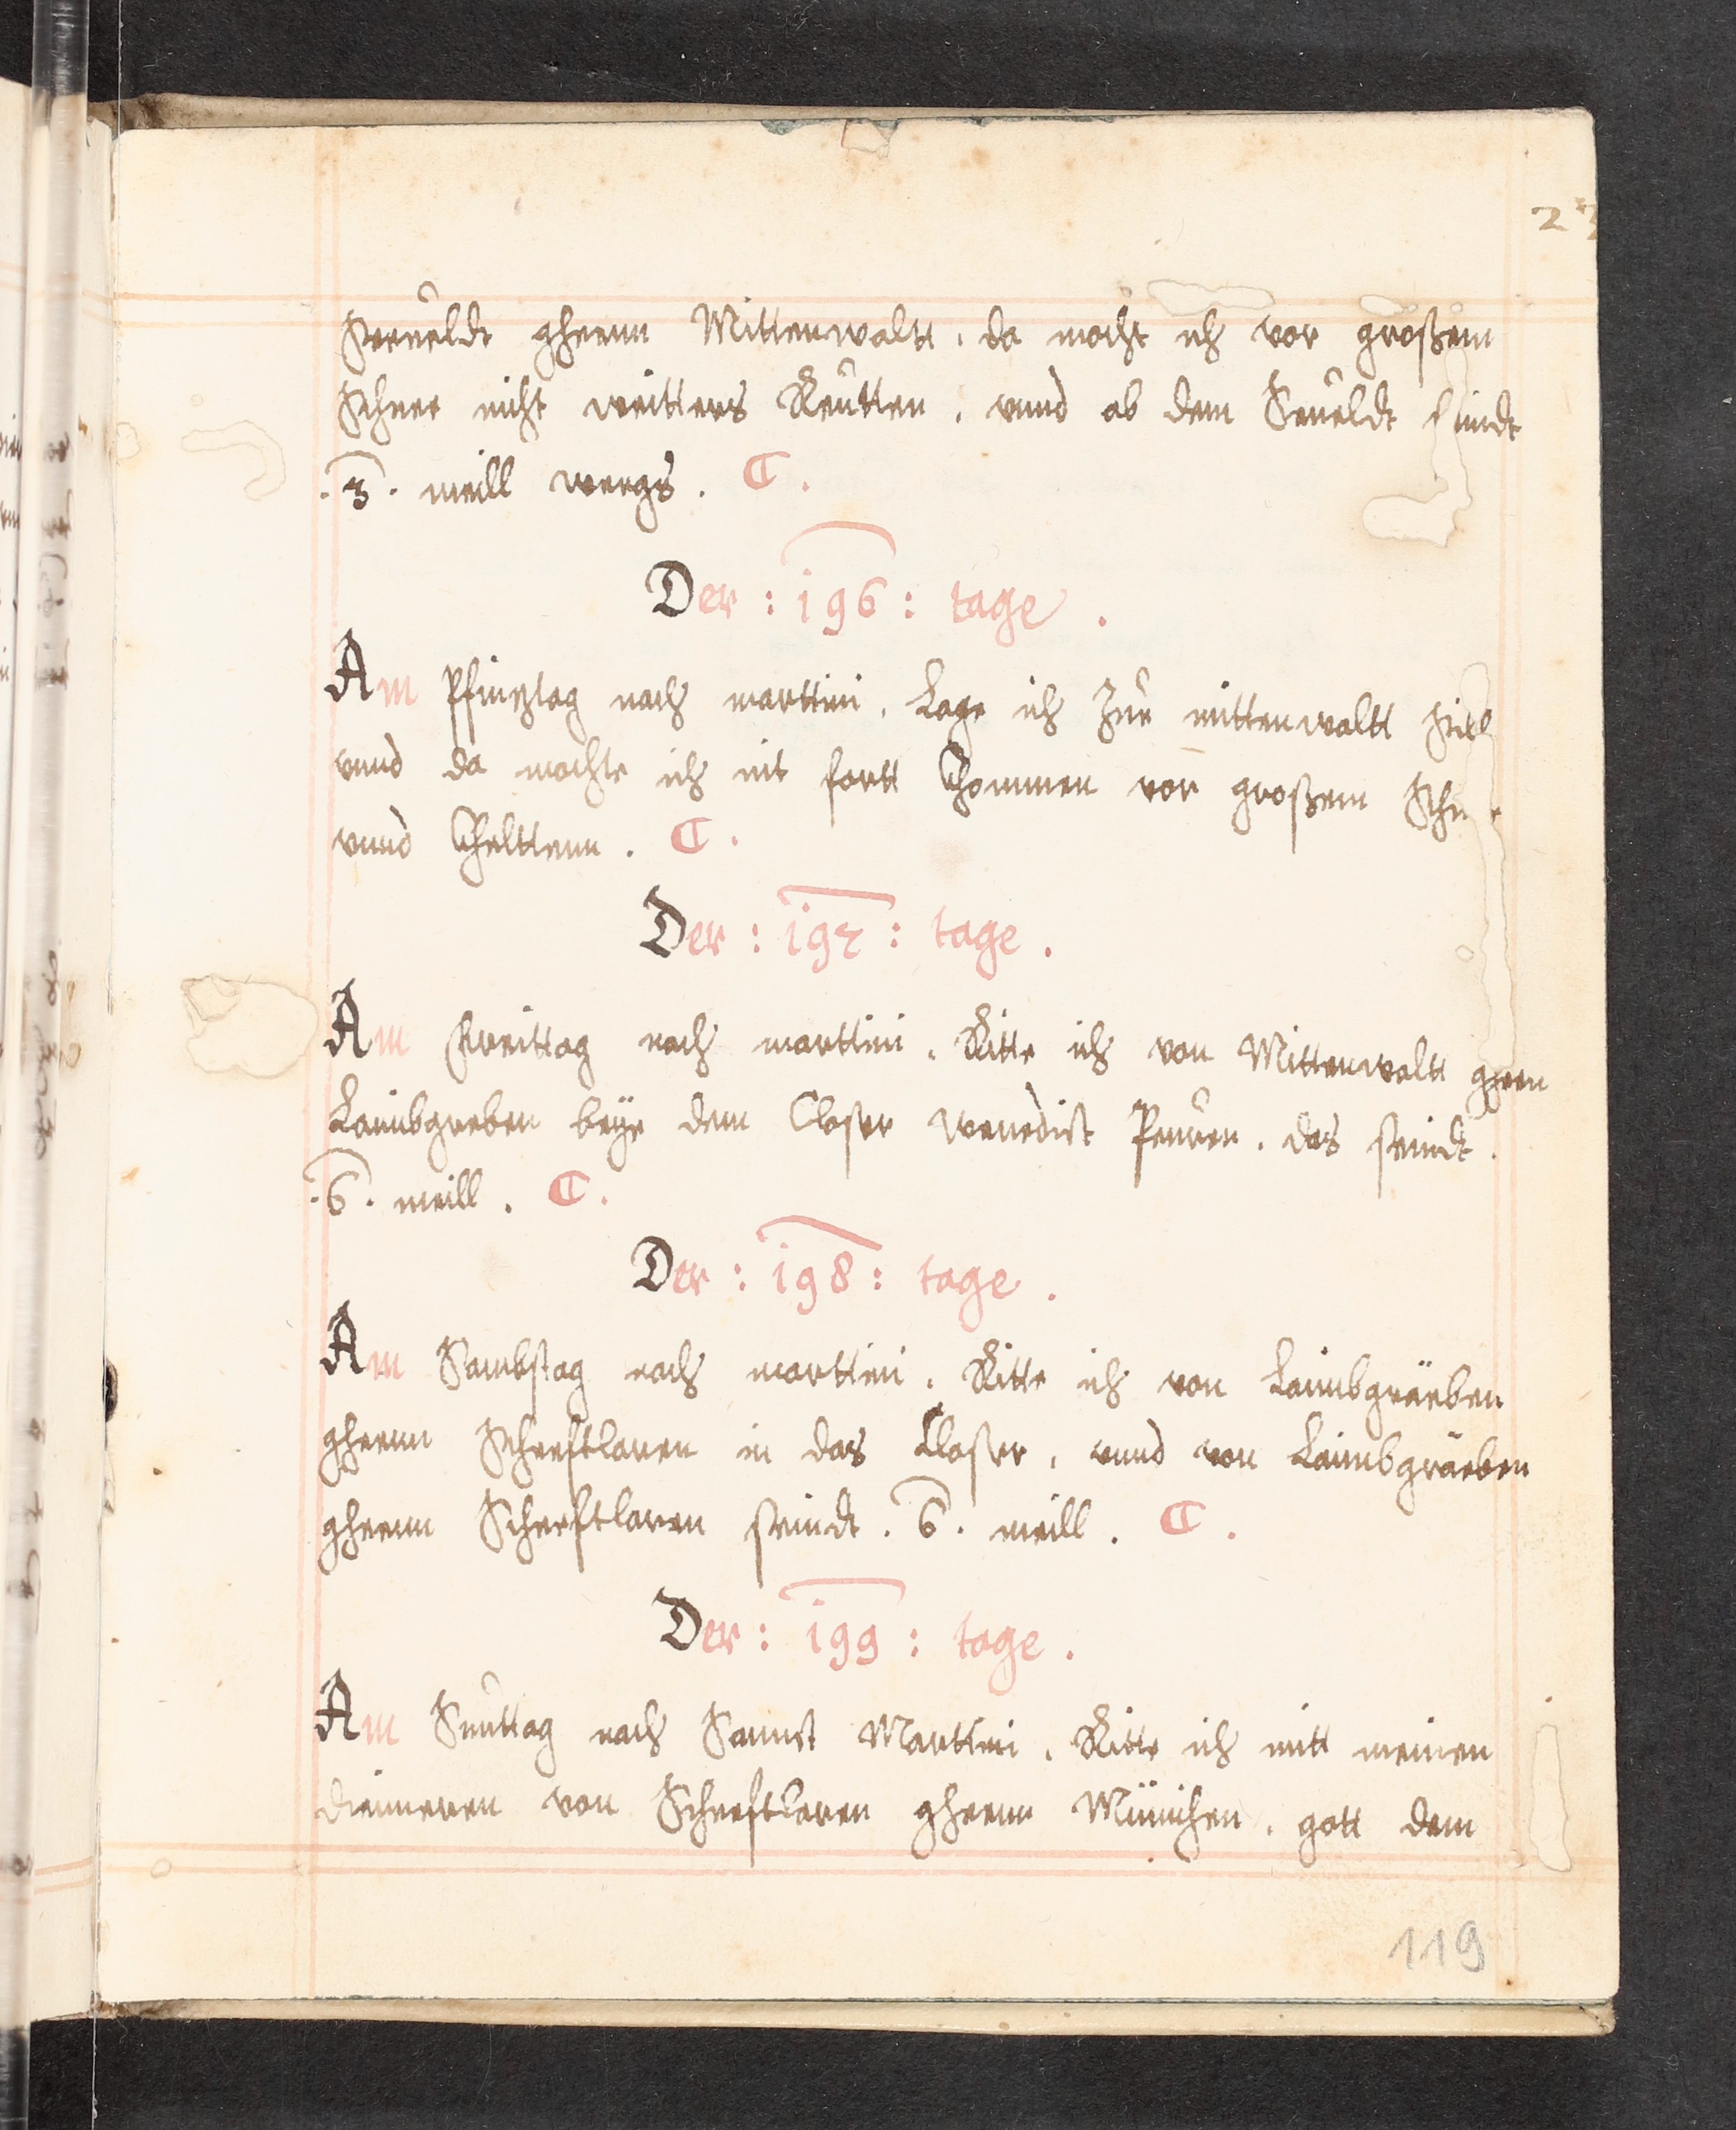 Seeueldt gheenn Mittenwaltt. da mocht ich vor großem
Schnee nicht weitters Reütten. vnnd ab dem Seueldt sindt
.3. meill weegs. C.
Der : 196 : tage .
Am Pfinztag nach marttini. Lage ich Zue mittenwaltt still
vnnd da mochte ich nit fortt Chommen vor großem Schnee
vnnd Chelttenn. C.
Der : 197 : tage .
Am Freittag nach marttini. Ritte ich von Mittenwaltt gheen
Laimbgreben beÿe dem Closter Wenedict Peuren. das seindt.
.6. meill. C.
Der : 198 : tage .
Am Sambstag nach marttini. Ritte ich von Laimbgräeben
gheenn Scheeftlaren in das Closter, vnnd von Laimbgräeben
gheenn Scheeftlaren seindt. 6. meill. C.
Der : 199 : tage .
Am Suntag nach Sannct Marttini. Ritte ich mitt meinen
dienneren von Scheeftlaren gheenn München. gott dem
119